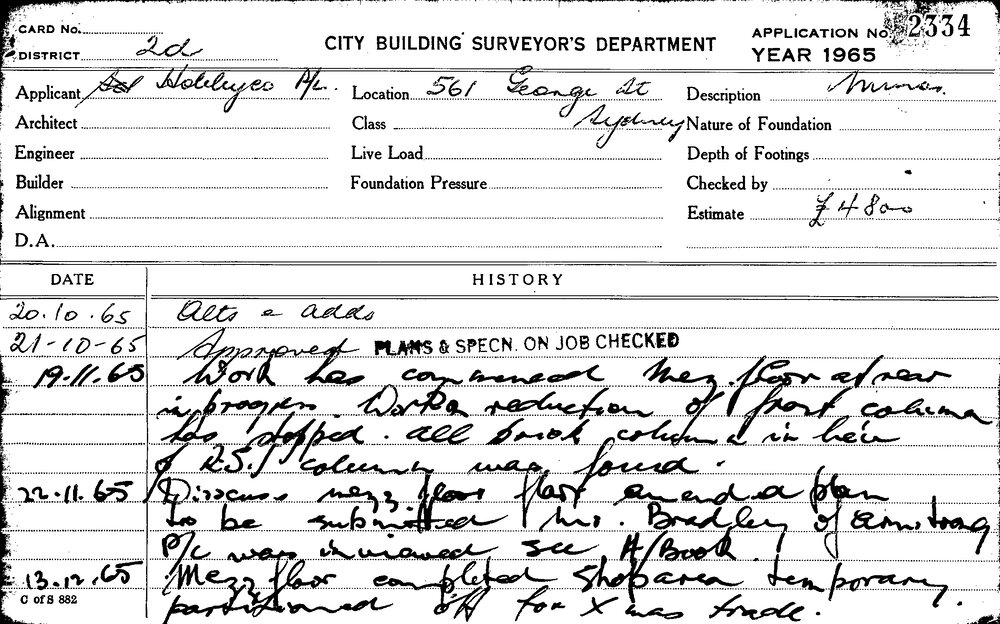 CARD No.
DISTRICT 2d
CITY BUILDING SURVEYOR'S DEPARTMENT
APPLICATION No. 2334
YEAR 1965
Applicant Hobbyco P/L. Location 561 George St Sydney Description
Architect Class Nature of Foundation
Engineer Live Load Depth of Footings
Builder Foundation Pressure Checked by
Alignment Estimate £4800
D.A.
DATE HISTORY
20.10.65 Alts & adds
21-10-65 Approved PLANS & SPECN. ON JOB CHECKED
19.11.65 Work has commenced Mezz. floor at rear
in progress. Work on reduction of front column
has stopped. All brick column in lieu
of R.S.J column was found.
22.11.65 Discuss mezz floor amended plan
to be submitted Mr. Bradley of Armstrong
P/L was inviewed see H/Book.
13.12.65 Mezz floor completed Shop area temporary
partitioned off for Xmas trade.
C of S 882